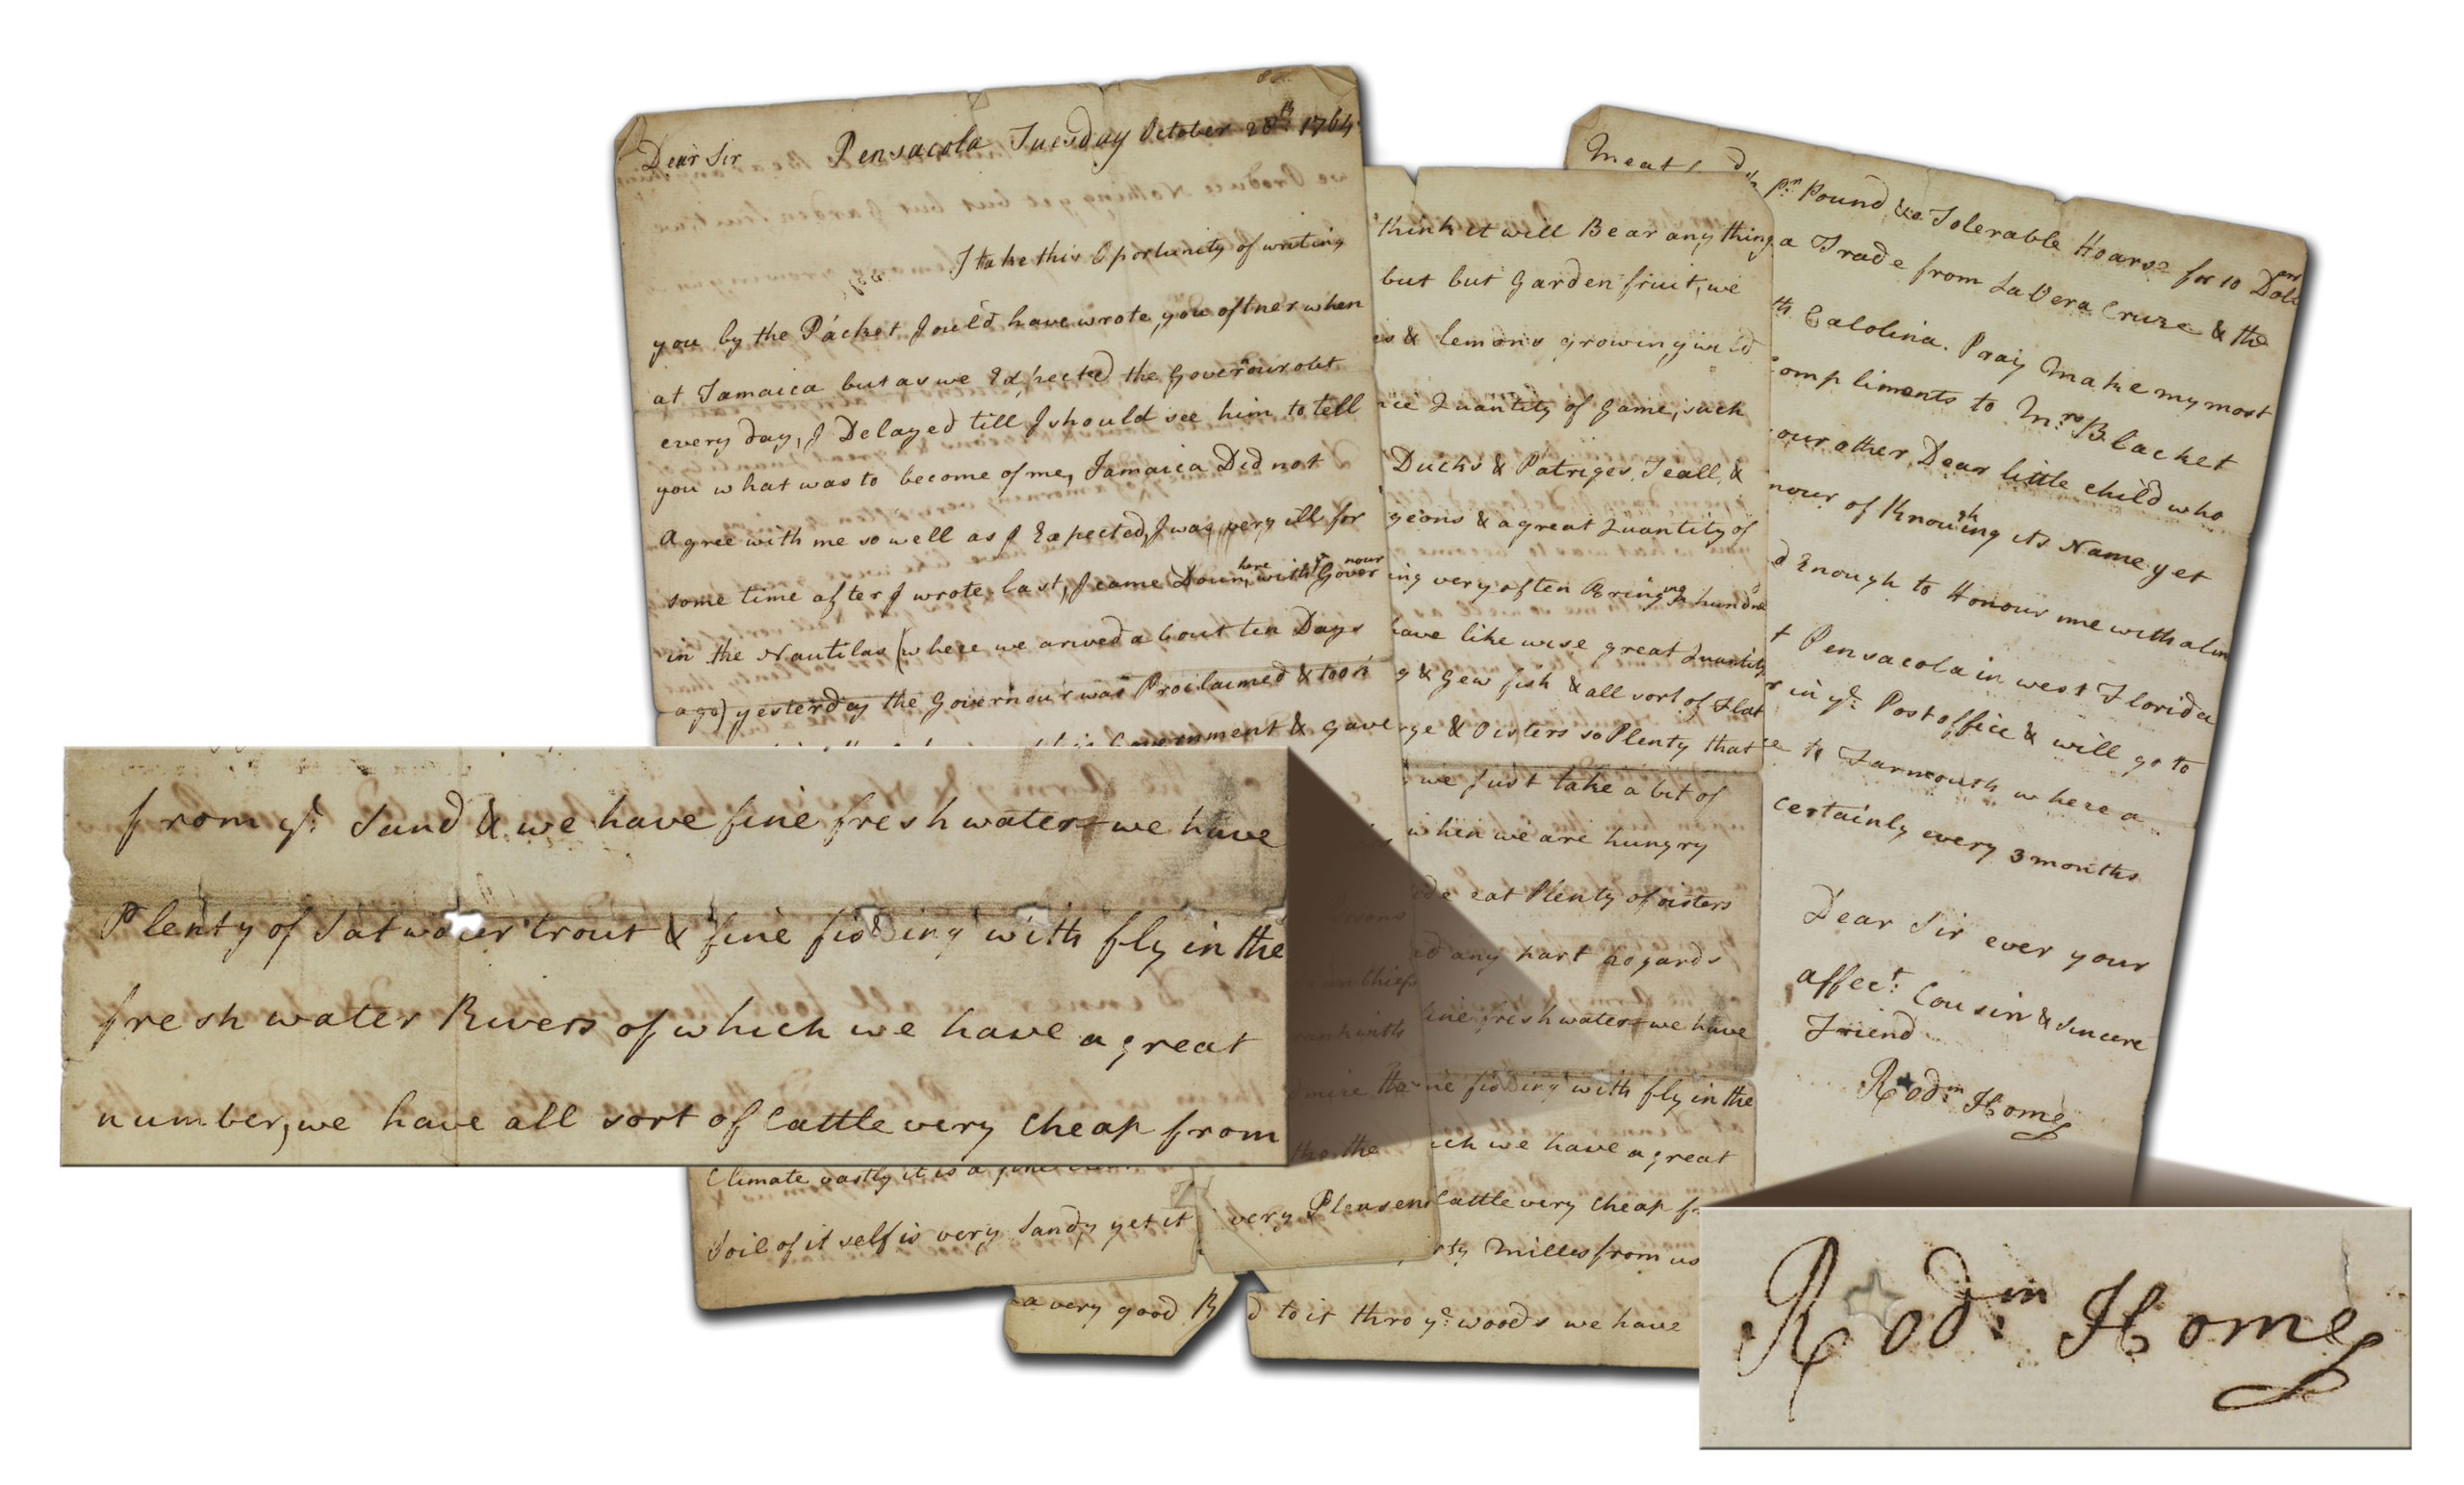 Dear Sir Pensacola Tuesday October 28th 1764
I take this Oportunity of writing
you by the Packet I ould have wrote you oftner when
at Jamaica but as we Expected the Governour out
every day, I Delayed till I should see him to tell
you what was to become of me, Jamaica Did not
agree with me so well as I Expected, I was very ill for
some time after I wrote last, I came Down here with ye Governour
in the Nautilas (where we arived about ten Days
ago) yesterday the Governour was Proclaimed & took
Government & gave
Climate vastly it is a fine
Soil of it self is very Sandy yet it
think it will Bear any thing
but but Garden fruit, we
& lemons growing wild
Quantity of Game, such
Ducks & Patriges, Teall, &
geons & a great Quantity of
ing very often Bringing a hundred
have like wise great Quantity
& Gew fish & all sort of Flat
& Oisters so Plenty that
we just take a bit of
when we are hungry
eat Plenty of oisters
any part 20 yards
fine fresh water we have
fishing with fly in the
ich we have a great
Cattle very cheap
very Pleasen
rty Milles from us
a very good R
d to it thro ye woods we have
Meat
pr Pound, & a Tolerable Hoarse for 10 Dollars
a Trade from La Vera Cruze & the
th Calolina. Pray Make my most
Compliments to Mrs Blacket
our other Dear little child who
nour of Knowing its Name yet
d Enough to Honour me with a line
t Pensacola in west Florida
r in ye Post office & will go to
to Jarmouth where a
certainly every 3 months
Dear Sir ever your
affect Cousin & Sincere
Friend
Rodm Home
from ye Sand & we have fine fresh water we have
Plenty of Satwater trout & fine fishing with fly in the
fresh water Rivers of which we have a great
number, we have all sort of Cattle very cheap from
Rodm Home